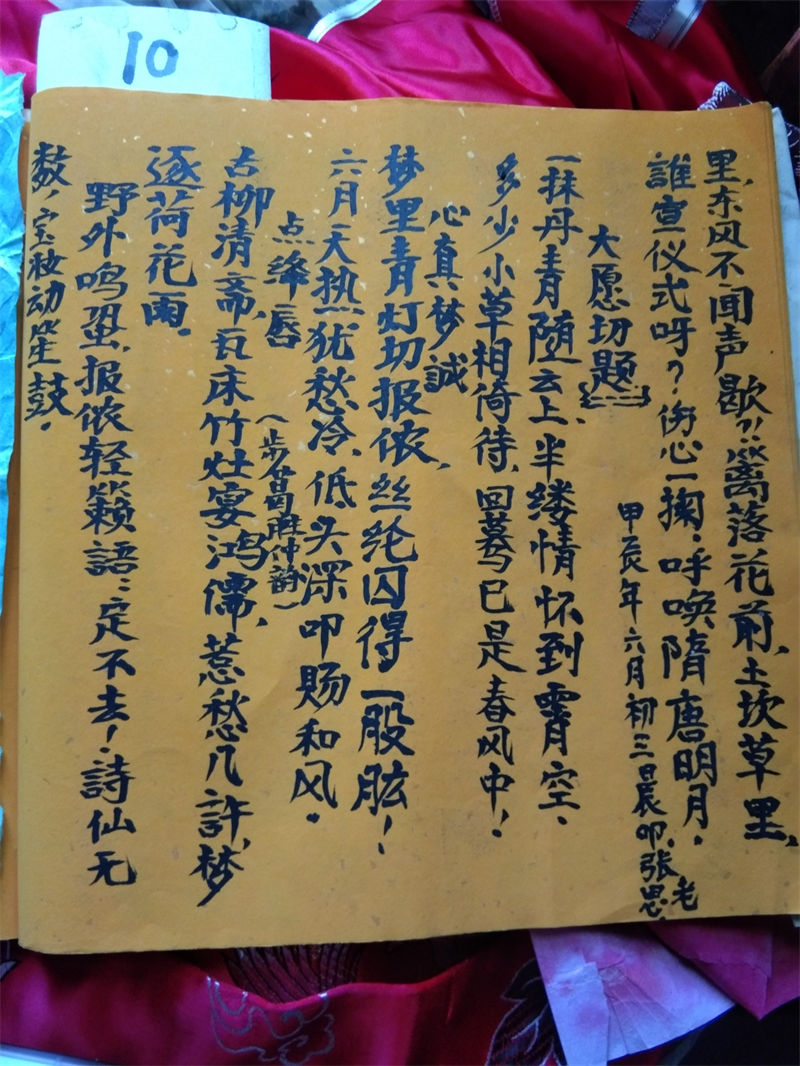 10
里,东风不闻声歇?!篱落花前,土坎草里,
誰宣仪式呀?伤心一掬:呼唤隋唐明月。
大愿切题
甲亥年六月初三晨叩,张思老
一抹丹青随云上、半缕情怀到霄空、
多少小草相倚待,回蓦已是春风中!
心真梦誠
梦里青灯切报侬,丝纶囚得一股肱!
六月天热犹愁冷,低头深叩赐和风。
点绛唇
(步葛胜仲韵)
古柳清斋,瓦床竹灶宴鸿儒,惹愁几許,梦
逐荷花雨。
野外鸣蛩,报侬轻籁語:定不去!詩仙无
数,宝妆动笙鼓。